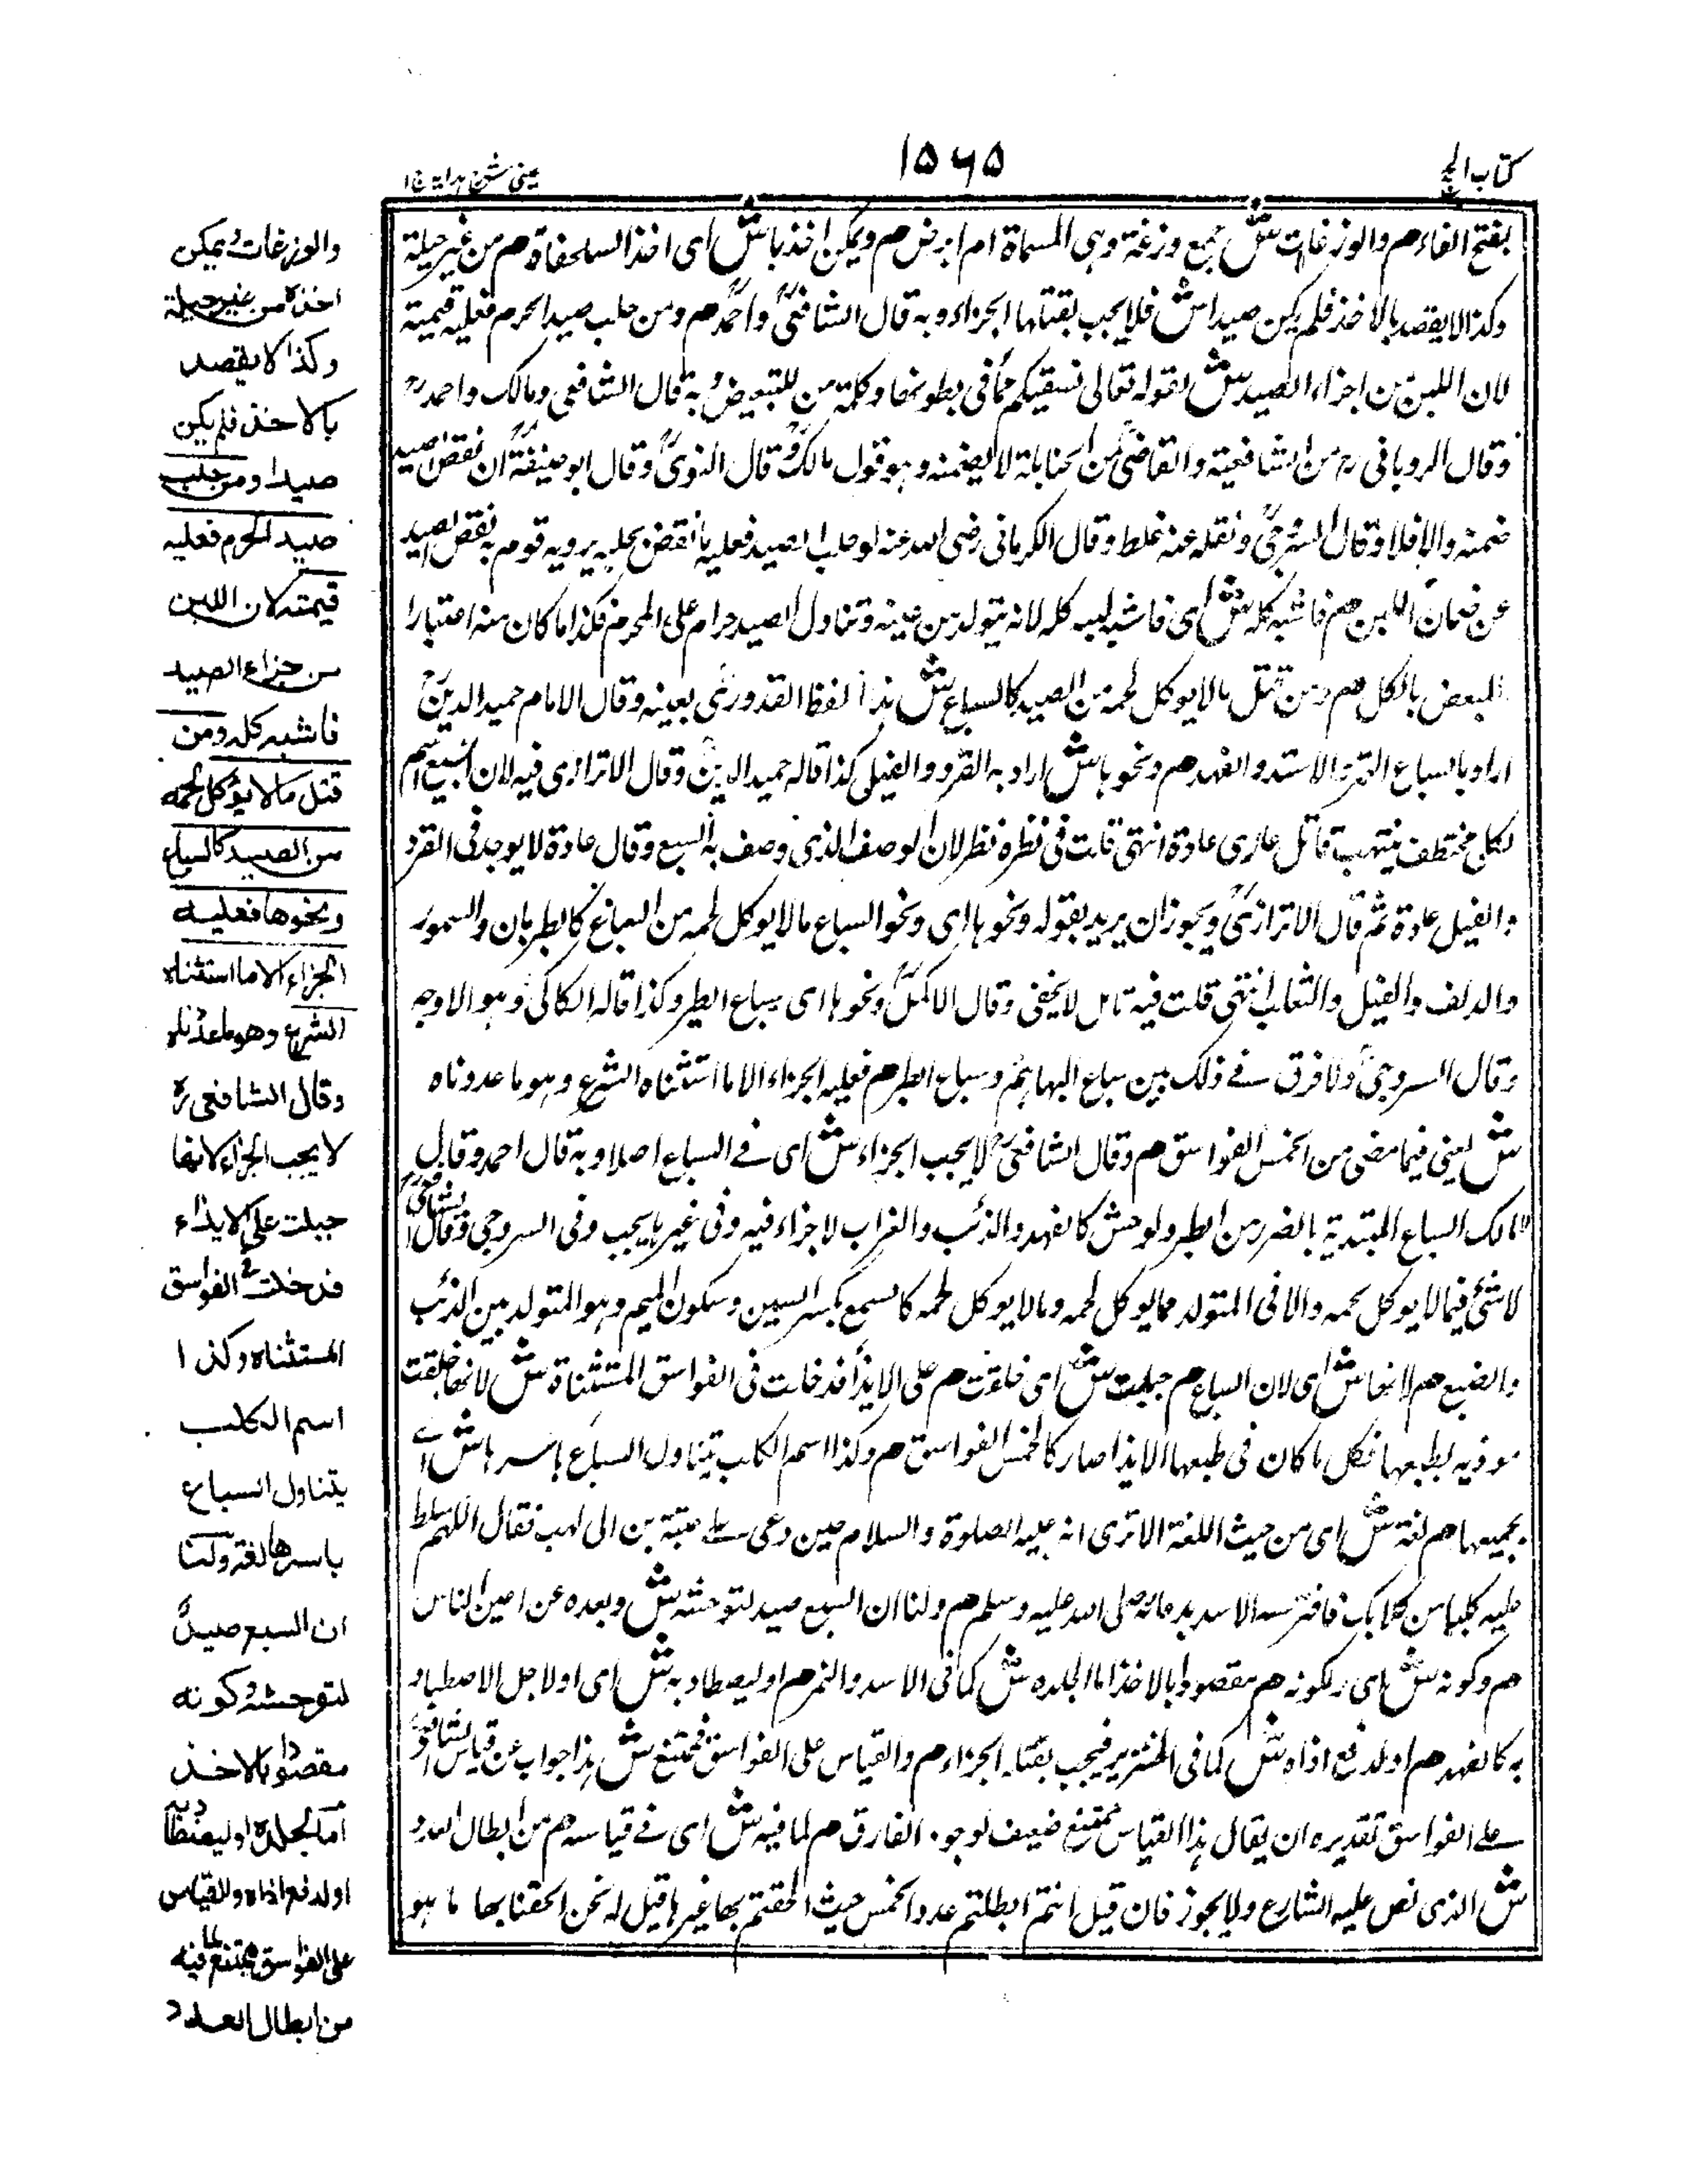 كتاب الحج
۱۵۶۵
عینی شرح ہدایہ ج ۱
بفتح الفاء م والوزغات ش جمع وزغة وهى المسماة ام ابرص م ويمكن اخذها ش اى اخذ السلحفاة م من غير حيلة
وكذا لا يقصد بالاخذ فلم يكن صيدا ش فلا يجب بقتلها الجزاء وبه قال الشافعىؒ واحمدؒ م ومن حلب صيد الحرم فعليه قيمته
لان اللبن من اجزاء الصيد ش لقوله تعالى نسقيكم مما فى بطونها وكلمة من للتبعيض وبه قال الشافعى ومالك واحمد رح
وقال الرويانى رح من الشافعية والقاضى من الحنابلة لا يضمنه وهو قول مالكؒ وقال النووىؒ وقال ابو حنيفةؒ ان نقص الصيد
ضمنه والا فلا وقال السروجىؒ ونقله عنه غلط وقال الكرمانى رضى الله عنه لو حلب الصيد فعليه ما نقص بحلبه يرويه قوم به نقص الصيد
عن ضمان اللبن م فاشبه كله ش اى فاشبه لبنه كله لانه يتولد من عينه وتناول الصيد حرام على المحرم فكذا ما كان منه اعتبارا
للبعض بالكل م ومن قتل ما لا يوكل لحمه من الصيد كالسباع ش هذا لفظ القدورىؒ بعينه وقال الامام حميد الدينؒ
اراد بالسباع النمر والاسد والفهد م ونحوها ش اراد به القرد والفيل كذا قاله حميد الدينؒ وقال الاترازى فيه لان السبع اسم
لكل مختطف منتهب قاتل عادى عادة انتهى قلت فى نظره نظر لان الوصف الذى وصف به السبع وقال عادة لا يوجد فى القرد
والفيل عادة ثم قال الاترازىؒ ويجوز ان يريد بقوله ونحوها اى ونحو السباع ما لا يوكل لحمه من السباع كالظربان والسمور
والدلف والفيل والثعالب انتهى قلت فيه تامل لا يخفى وقال الاكملؒ ونحوها اى سباع الطير وكذا قاله الكاكىؒ وهو الاوجه
وقال السروجىؒ ولا فرق فے ذلك بين سباع البهائم وسباع الطير م فعليه الجزاء الا ما استثناه الشرع وهو ما عددناه
ش يعنى فيما مضى من الخمس الفواسق م وقال الشافعىؒ لا يجب الجزاء ش اى فے السباع اصلا وبه قال احمد وقال
مالك السباع المبتدية بالضرر من الطير ولوحش كالفهد والذئب والغراب لا جزاء فيه وفى غيرها يجب وفى السروجى وقال الشافعىؒ
لا شئ فيما لا يوكل لحمه والا فى المتولد مما يوكل لحمه وما لا يوكل لحمه كالسمع بكسر السين وسكون الميم وهو المتولد بين الذئب
والضبع م لانها ش اى لان السباع م جبلت ش اى خلقت م على الايذاء فدخلت فى الفواسق المستثناة ش لانها خلقت
موذيه بطبعها فكل ما كان فى طبعها الايذا صار كالخمس الفواسق م وكذا اسم الكلب يتناول السباع باسرها ش اے
بجميعها م لغة ش اى من حيث اللغة الا ترى انه عليه الصلوة والسلام حين دعى علے عتبة بن ابى لهب فقال اللهم سلط
عليه كلبا من كلابك فافترسه الاسد بدعائه صلى الله عليه وسلم م ولنا ان السبع صيد لتوحشه ش وبعده عن اعين الناس
م وكونه ش اى ولكونه م مقصودا بالاخذ اما لجلده ش كما فى الاسد والنمر م او ليصطاد به ش اى او لاجل الاصطياد
به كالفهد م او لدفع اذاه ش كما فى الخنزير فيجب بقتله الجزاء م والقياس على الفواسق ممتنع ش هذا جواب عن قياس الشافعىؒ
علے الفواسق تقديره ان يقال هذا القياس ممتنع ضعيف لوجود الفارق م لما فيه ش اى فے قياسه م من ابطال العدد
ش الذى نص عليه الشارع ولا يجوز فان قيل انتم ابطلتم عدد الخمس حيث الحقتم بها غيرها قيل له نحن الحقنا بها ما هو
والوزغات ويمكن
اخذه من غير حيلة
وكذا لا يقصد
بالاخذ فلم يكن
صيدا ومن حلب
صيد الحرم فعليه
قيمته لان اللبن
من جزاء الصيد
فاشبه كله ومن
قتل ما لا يؤكل لحمه
من الصيد كالسباع
ونحوها فعليه
الجزاء الا ما استثناه
الشرع وهو ما عددناه
وقال الشافعى رح
لا يجب الجزاء لانها
جبلت على الايذاء
فدخلت فى الفواسق
المستثناه وكذا
اسم الكلب
يتناول السباع
باسرها لغة ولنا
ان السبع صيد
لتوحشه وكونه
مقصودا بالاخذ
اما لجلده او ليصطاد به
او لدفع اذاه والقياس
على الفواسق ممتنع لما فيه
من ابطال العدد